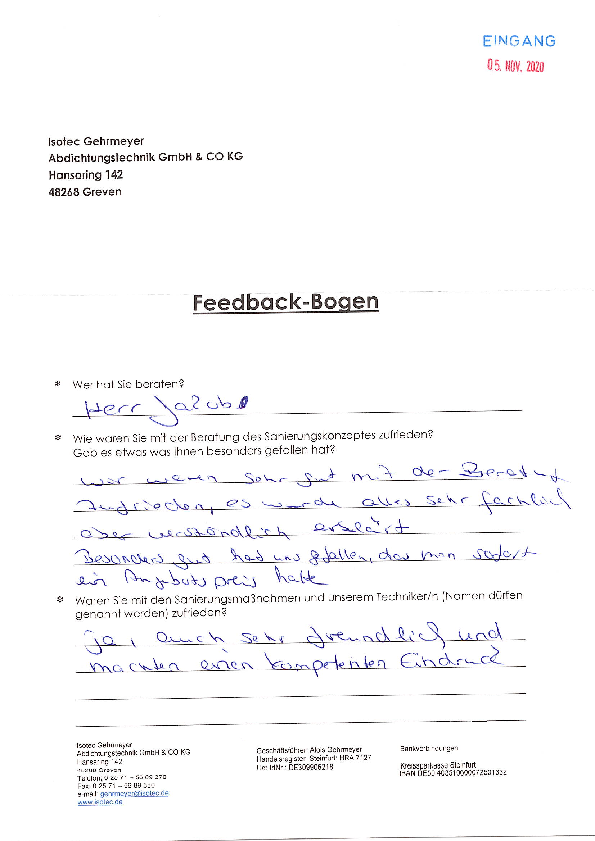 EINGANG
05. NOV. 2020
Isotec Gehrmeyer
Abdichtungstechnik GmbH & CO KG
Hansaring 142
48268 Greven
Feedback-Bogen
* Wer hat Sie beraten?
Herr Jacobs
* Wie waren Sie mit der Beratung des Sanierungskonzeptes zufrieden?
Gab es etwas was Ihnen besonders gefallen hat?
wir waren sehr gut mit der Beratung
zufrieden, es wurde alles sehr fachlich
aber verständlich erklärt
Besonders gut hat uns gefallen, das man sofort
ein Angebotspreis hatte
* Waren Sie mit den Sanierungsmaßnahmen und unserem Techniker/n (Namen dürfen
genannt werden) zufrieden?
Ja, auch sehr freundlich und
machten einen kompetenten Eindruck
Isotec Gehrmeyer
Abdichtungstechnik GmbH & CO KG
Hansaring 142
48268 Greven
Telefon: 0 25 71 –
Fax: 0 25 71 –
e-mail: gehrmeyer@isotec.de
www.isotec.de
Geschäftsführer: Alois Gehrmeyer
Handelsregister: Steinfurt HRA 7127
DE309906218
Bankverbindungen
Kreissparkasse Steinfurt